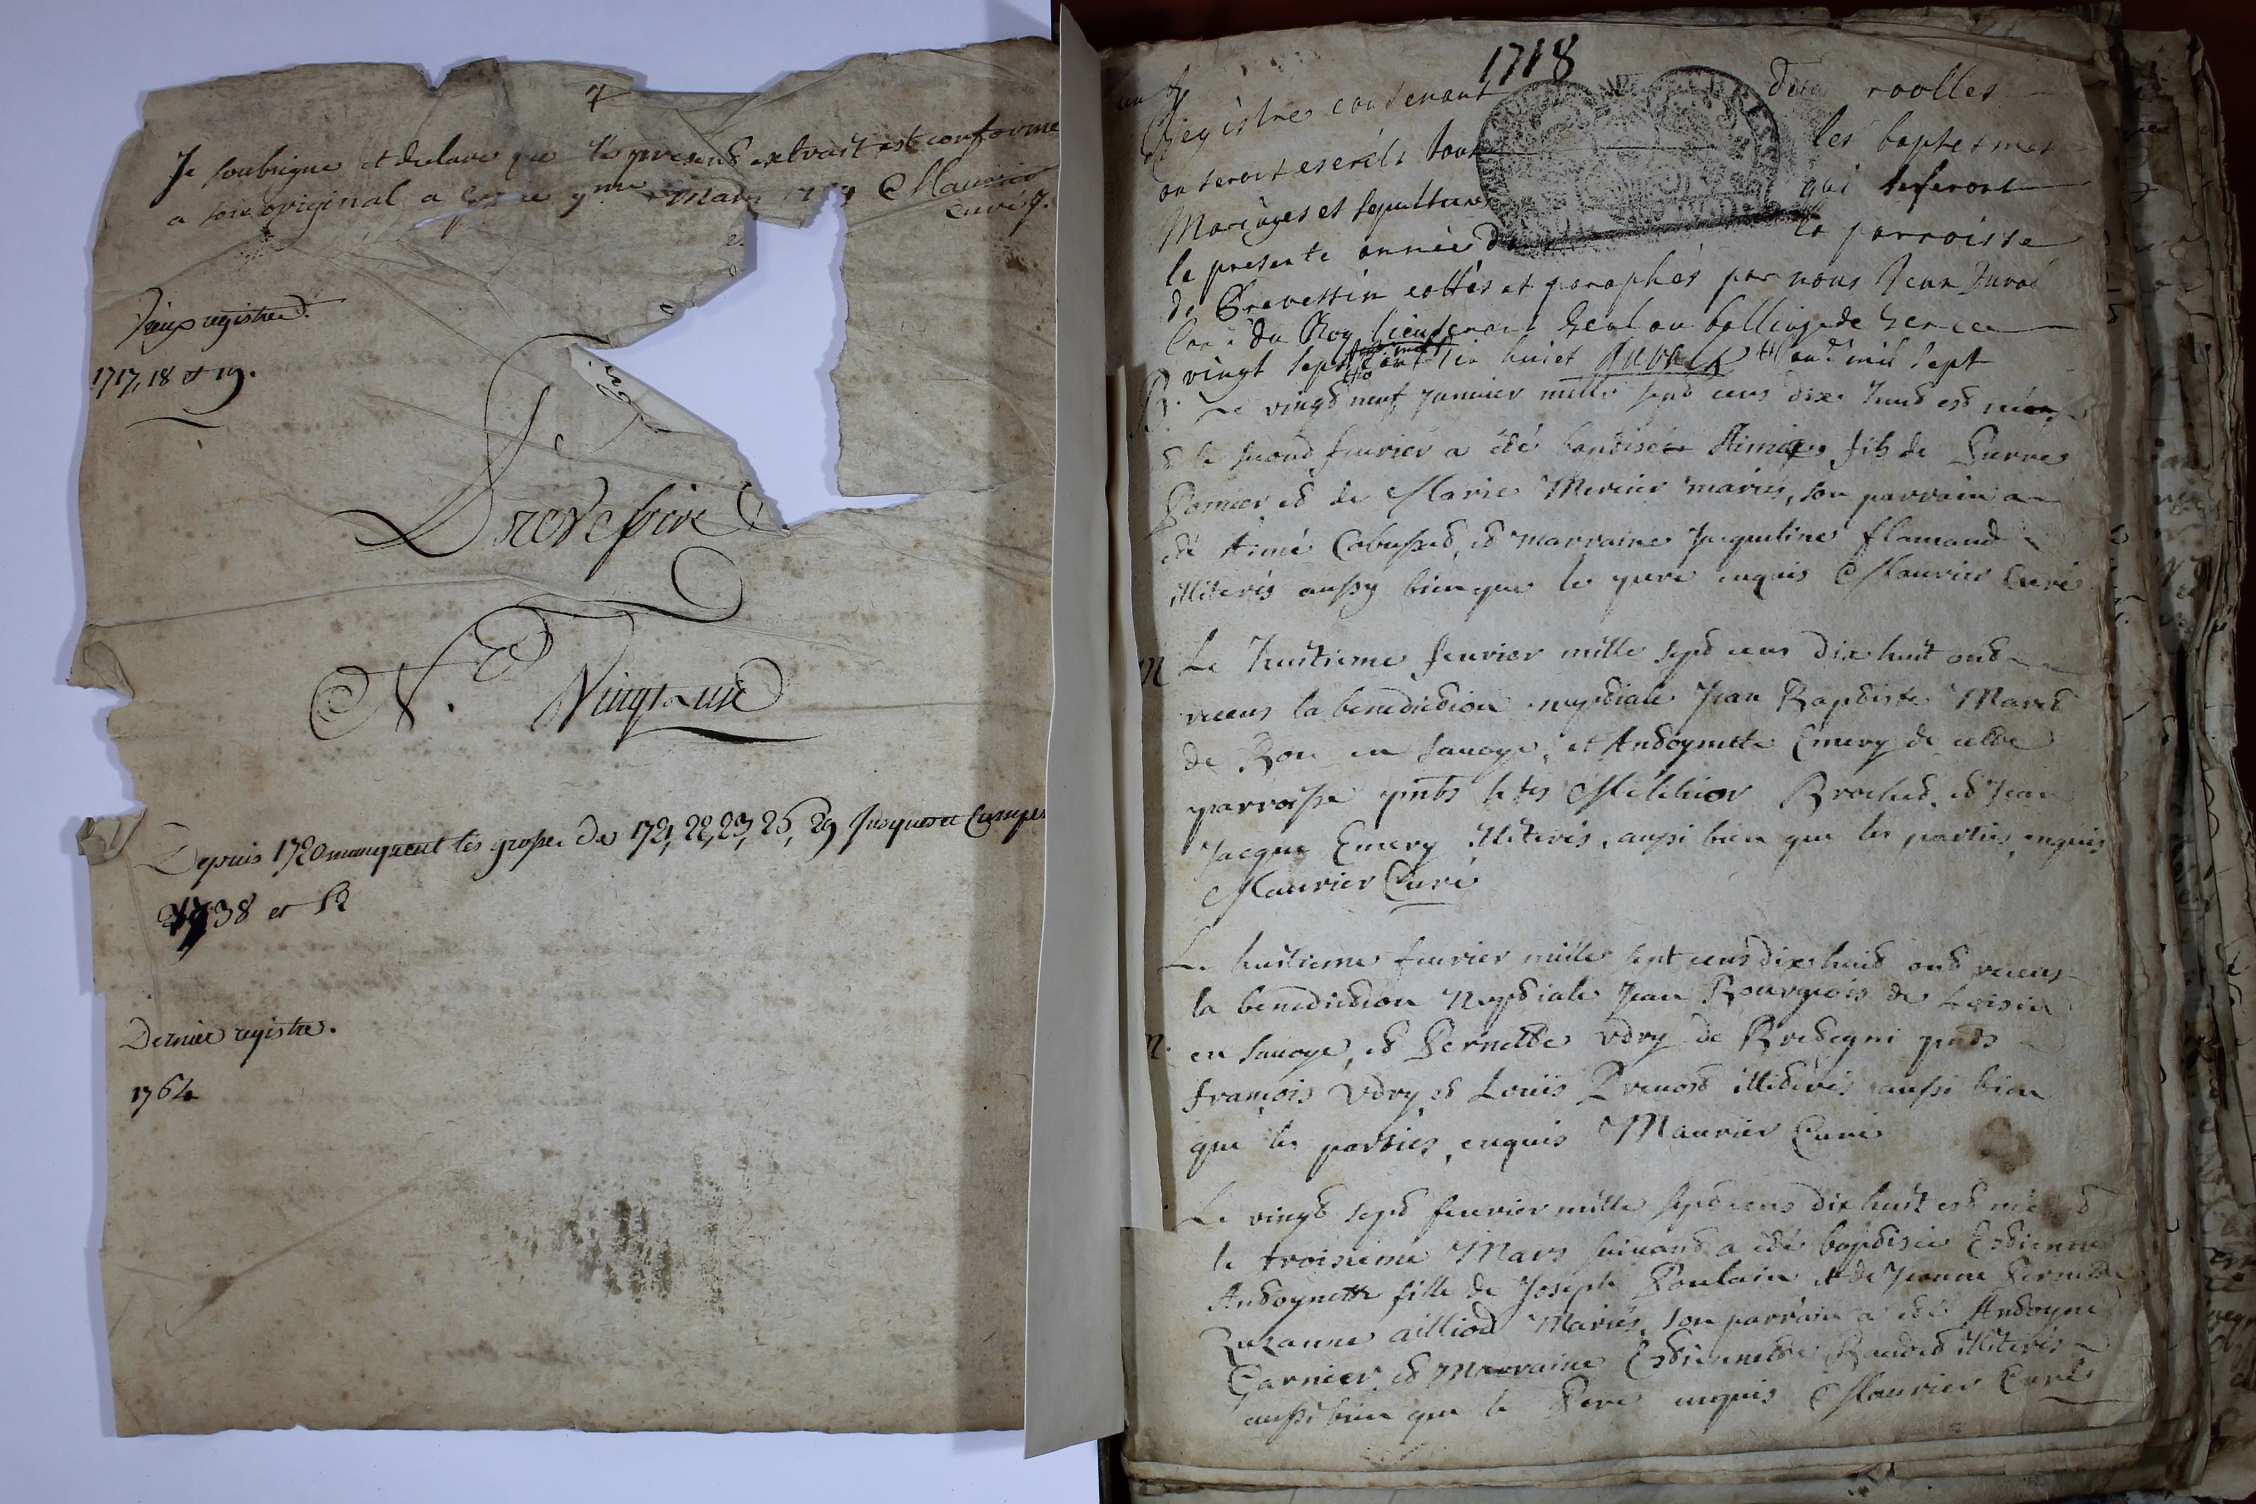 Je soubsigne et declare que le present extrait est conforme
a son original a ce Mars Maurier
curé
Vieux registres.
1717, 18 et 19.
Prevessin
N.° Vingt un
Depuis 1720 manquent les grosses de 1721, 22, 23, 25, 29 jusques et Compris
1738 et
Dernier registre.
1764
1718
Registre contenant deux roolles
ou seront escrits tous les baptesmes
Mariages et sepultures qui se feront
la presente année dans la parroisse
de Prevessin cottés et paraphés par nous Jean Duval
Con.er du Roy lieutenant gnal au balliage de Gex ce
vingt sept mil sept
cent dix huict Duval
B. Le vingt neuf Janvier mille sept cens dix huit est né
& le second fevrier a été baptisé Aimé fils de Pierre
Pomier et de Marie Mercier mariés, son parrain a
été Aimé Cabusset, et marraine Jaqueline flamand
illiterés aussy bien que le pere enquis Maurier Curé
M Le huitieme fevrier mille sept cens dix huit ont
receus la benediction nuptiale Jean Baptiste Maret
de Bon en savoye, et Anthoynette Emery de cette
parroisse pnts les ts Melchior Brochet et Jean
Jacque Emery illiterés, aussi bien que les parties enquis
Maurier Curé
Le huitieme fevrier mille sept cens dix huit ont receus
la benediction Nuptiale Jean Bourgeois de Loisin
M. en savoye, et Pernette Vdry de Bretegni pnts
François Vdry et Louis Prevost illiterés aussi bien
que les parties, enquis Maurier Curé
Le vingt sept fevrier mille sept cens dix huit est née et
le troisieme Mars suivant a été baptisée Estienne
Anthoynette fille de Joseph Poulain et de Jeanne Pernette
Zuzanne ailliod Mariés, son parrain a été Anthoyne
Garnier et Marraine Estiennette Baudet illiterés
aussi bien que le Pere enquis Maurier Curé